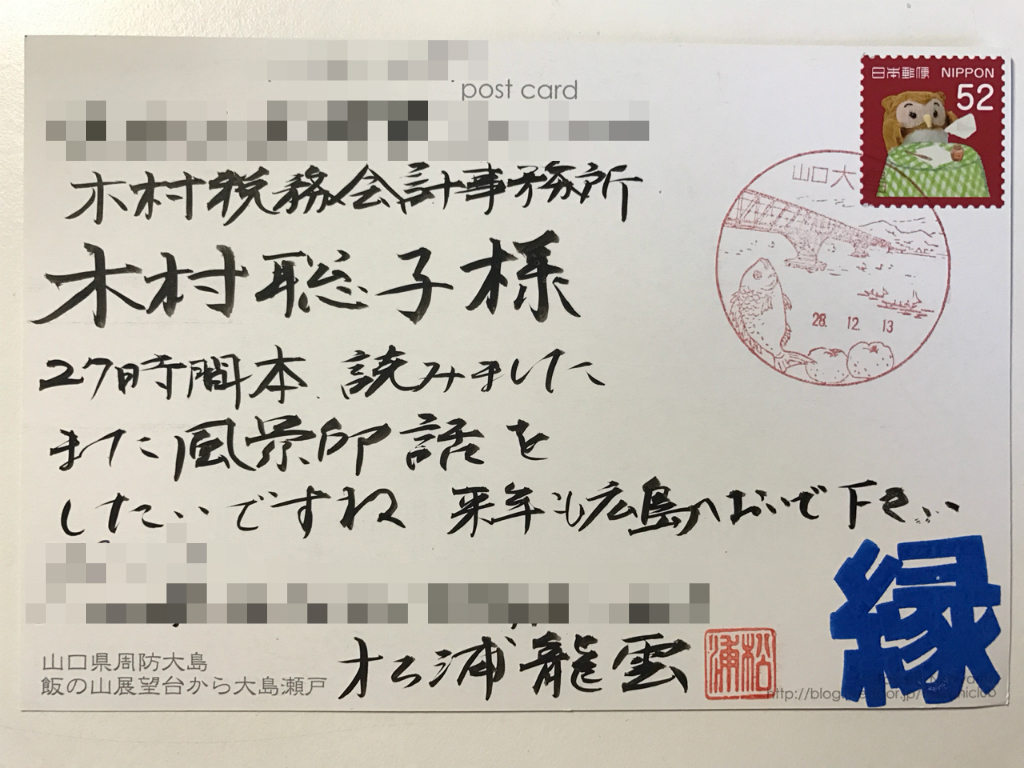 post card
日本郵便 NIPPON
52
山口大
28. 12. 13
木村税務会計事務所
木村聡子様
27時間本 読みました
また風景印話を
したいですね 来年も広島へおいで下さい
松浦龍雲
松浦
縁
山口県周防大島
飯の山展望台から大島瀬戸